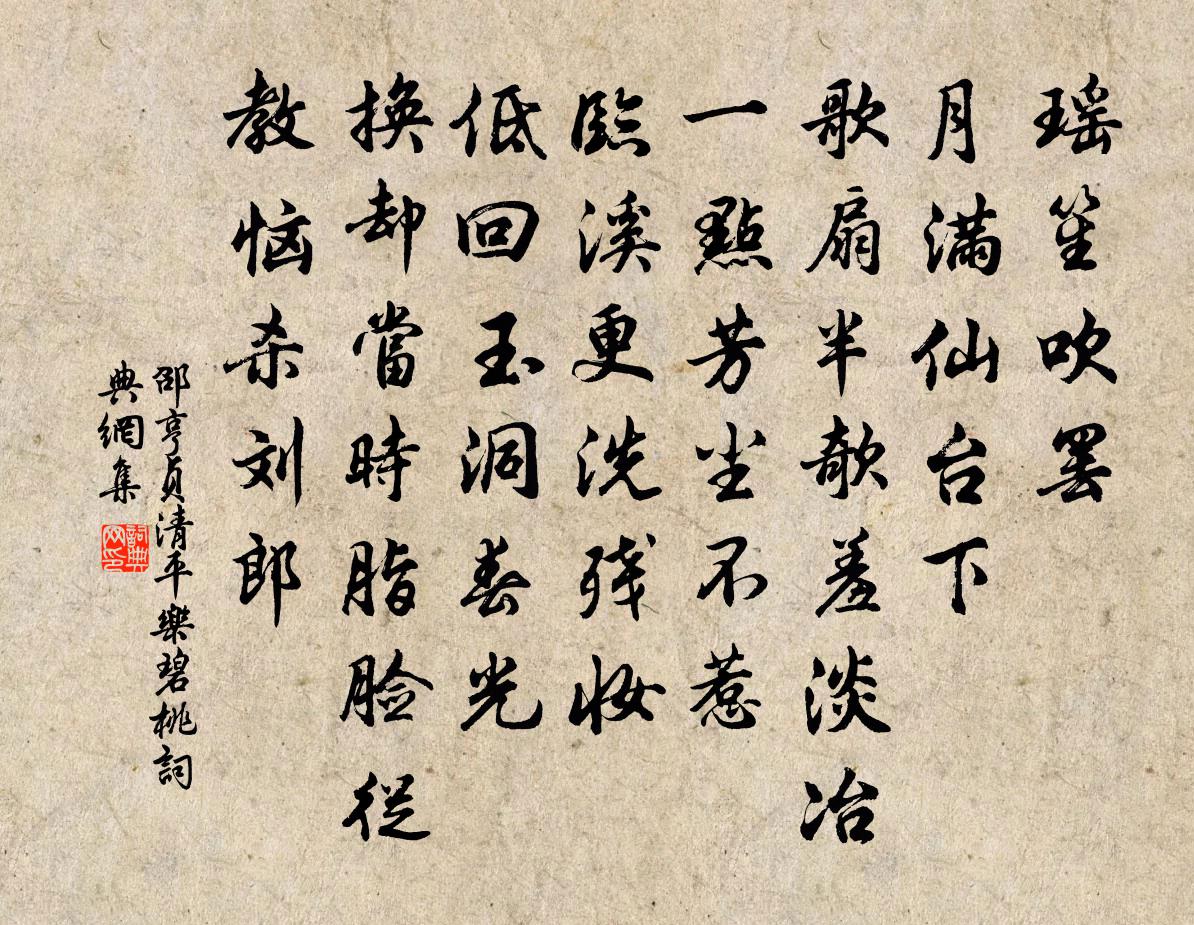 瑶笙吹罢
月满仙台下
歌扇半欹羞淡冶
一點芳尘不惹
臨溪更洗残妆
低回玉洞春光
换却當時脂脸從
教恼杀刘郎
邵亨貞清平樂碧桃詞
典網集
詞典网印